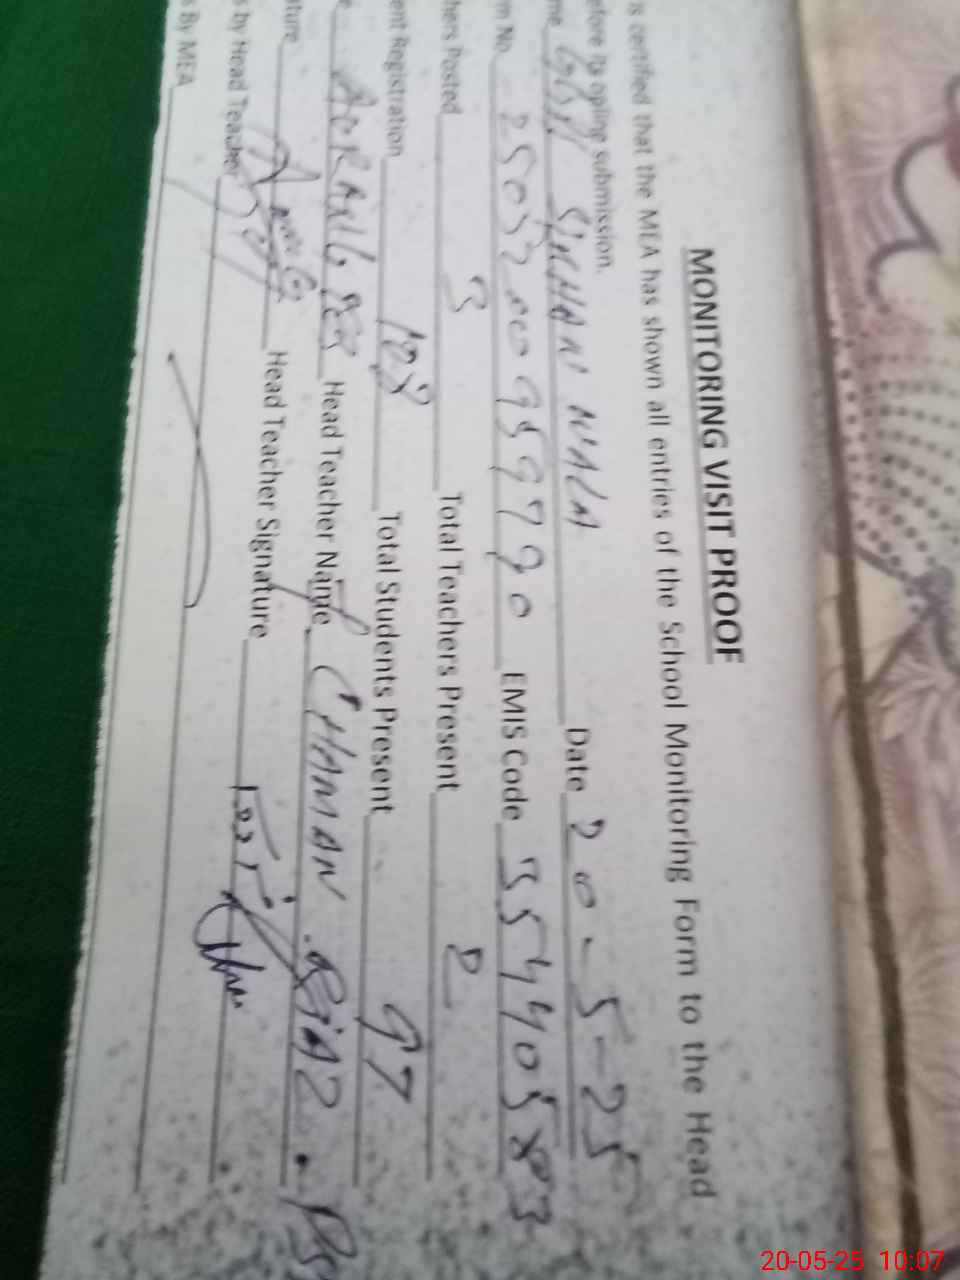 MONITORING VISIT PROOF
is certified that the MEA has shown all entries of the School Monitoring Form to the Head
efore its opling submission.
me Date 20-5-25
m No EMIS Code 35440583
hers Posted 3 Total Teachers Present 2
ent Registration 108 Total Students Present 97
e AORANGZEB Head Teacher Name CHAMAN RIAZ
ature Head Teacher Signature
s by Head Teacher
s By MEA
20-05-25 10:07